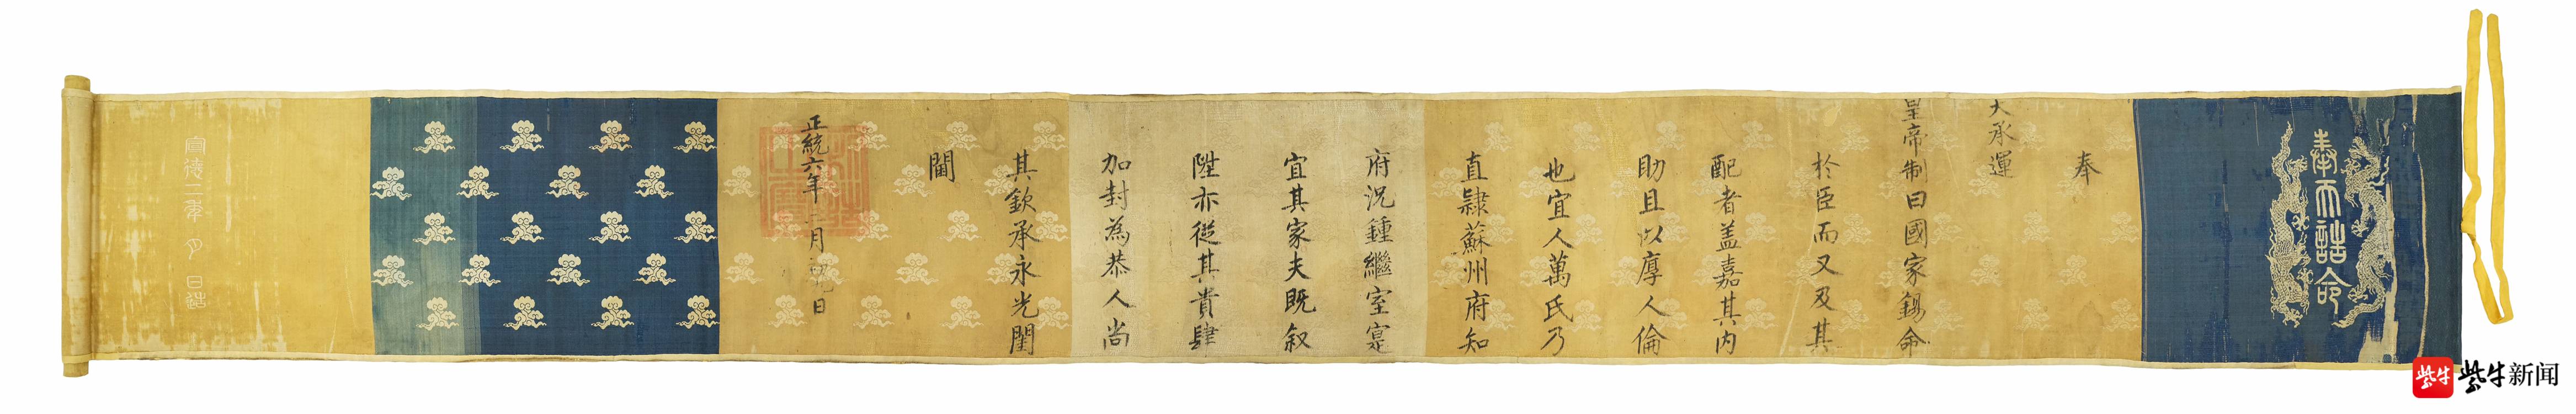 奉天誥命
奉
天承運
皇帝制曰國家錫命
於臣而又及其
配者盖嘉其内
助且以厚人倫
也宜人萬氏乃
直隸蘇州府知
府况鍾繼室寔
宜其家夫既叙
陞亦從其貴肆
加封為恭人尚
其欽承永光閨
閫
正統六年二月初九日
宣德二年 月 日誥
紫牛新闻